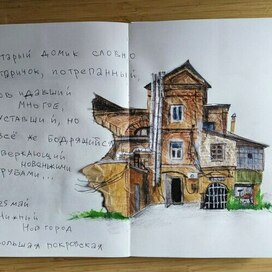 старый домик словно
старичок, потрёпанный,
повидавший
многое,
уставший, но
всё же бодрящийся
сверкающий
новёнькими
трубами...
29 май
Нижний
Новгород
Большая Покровская